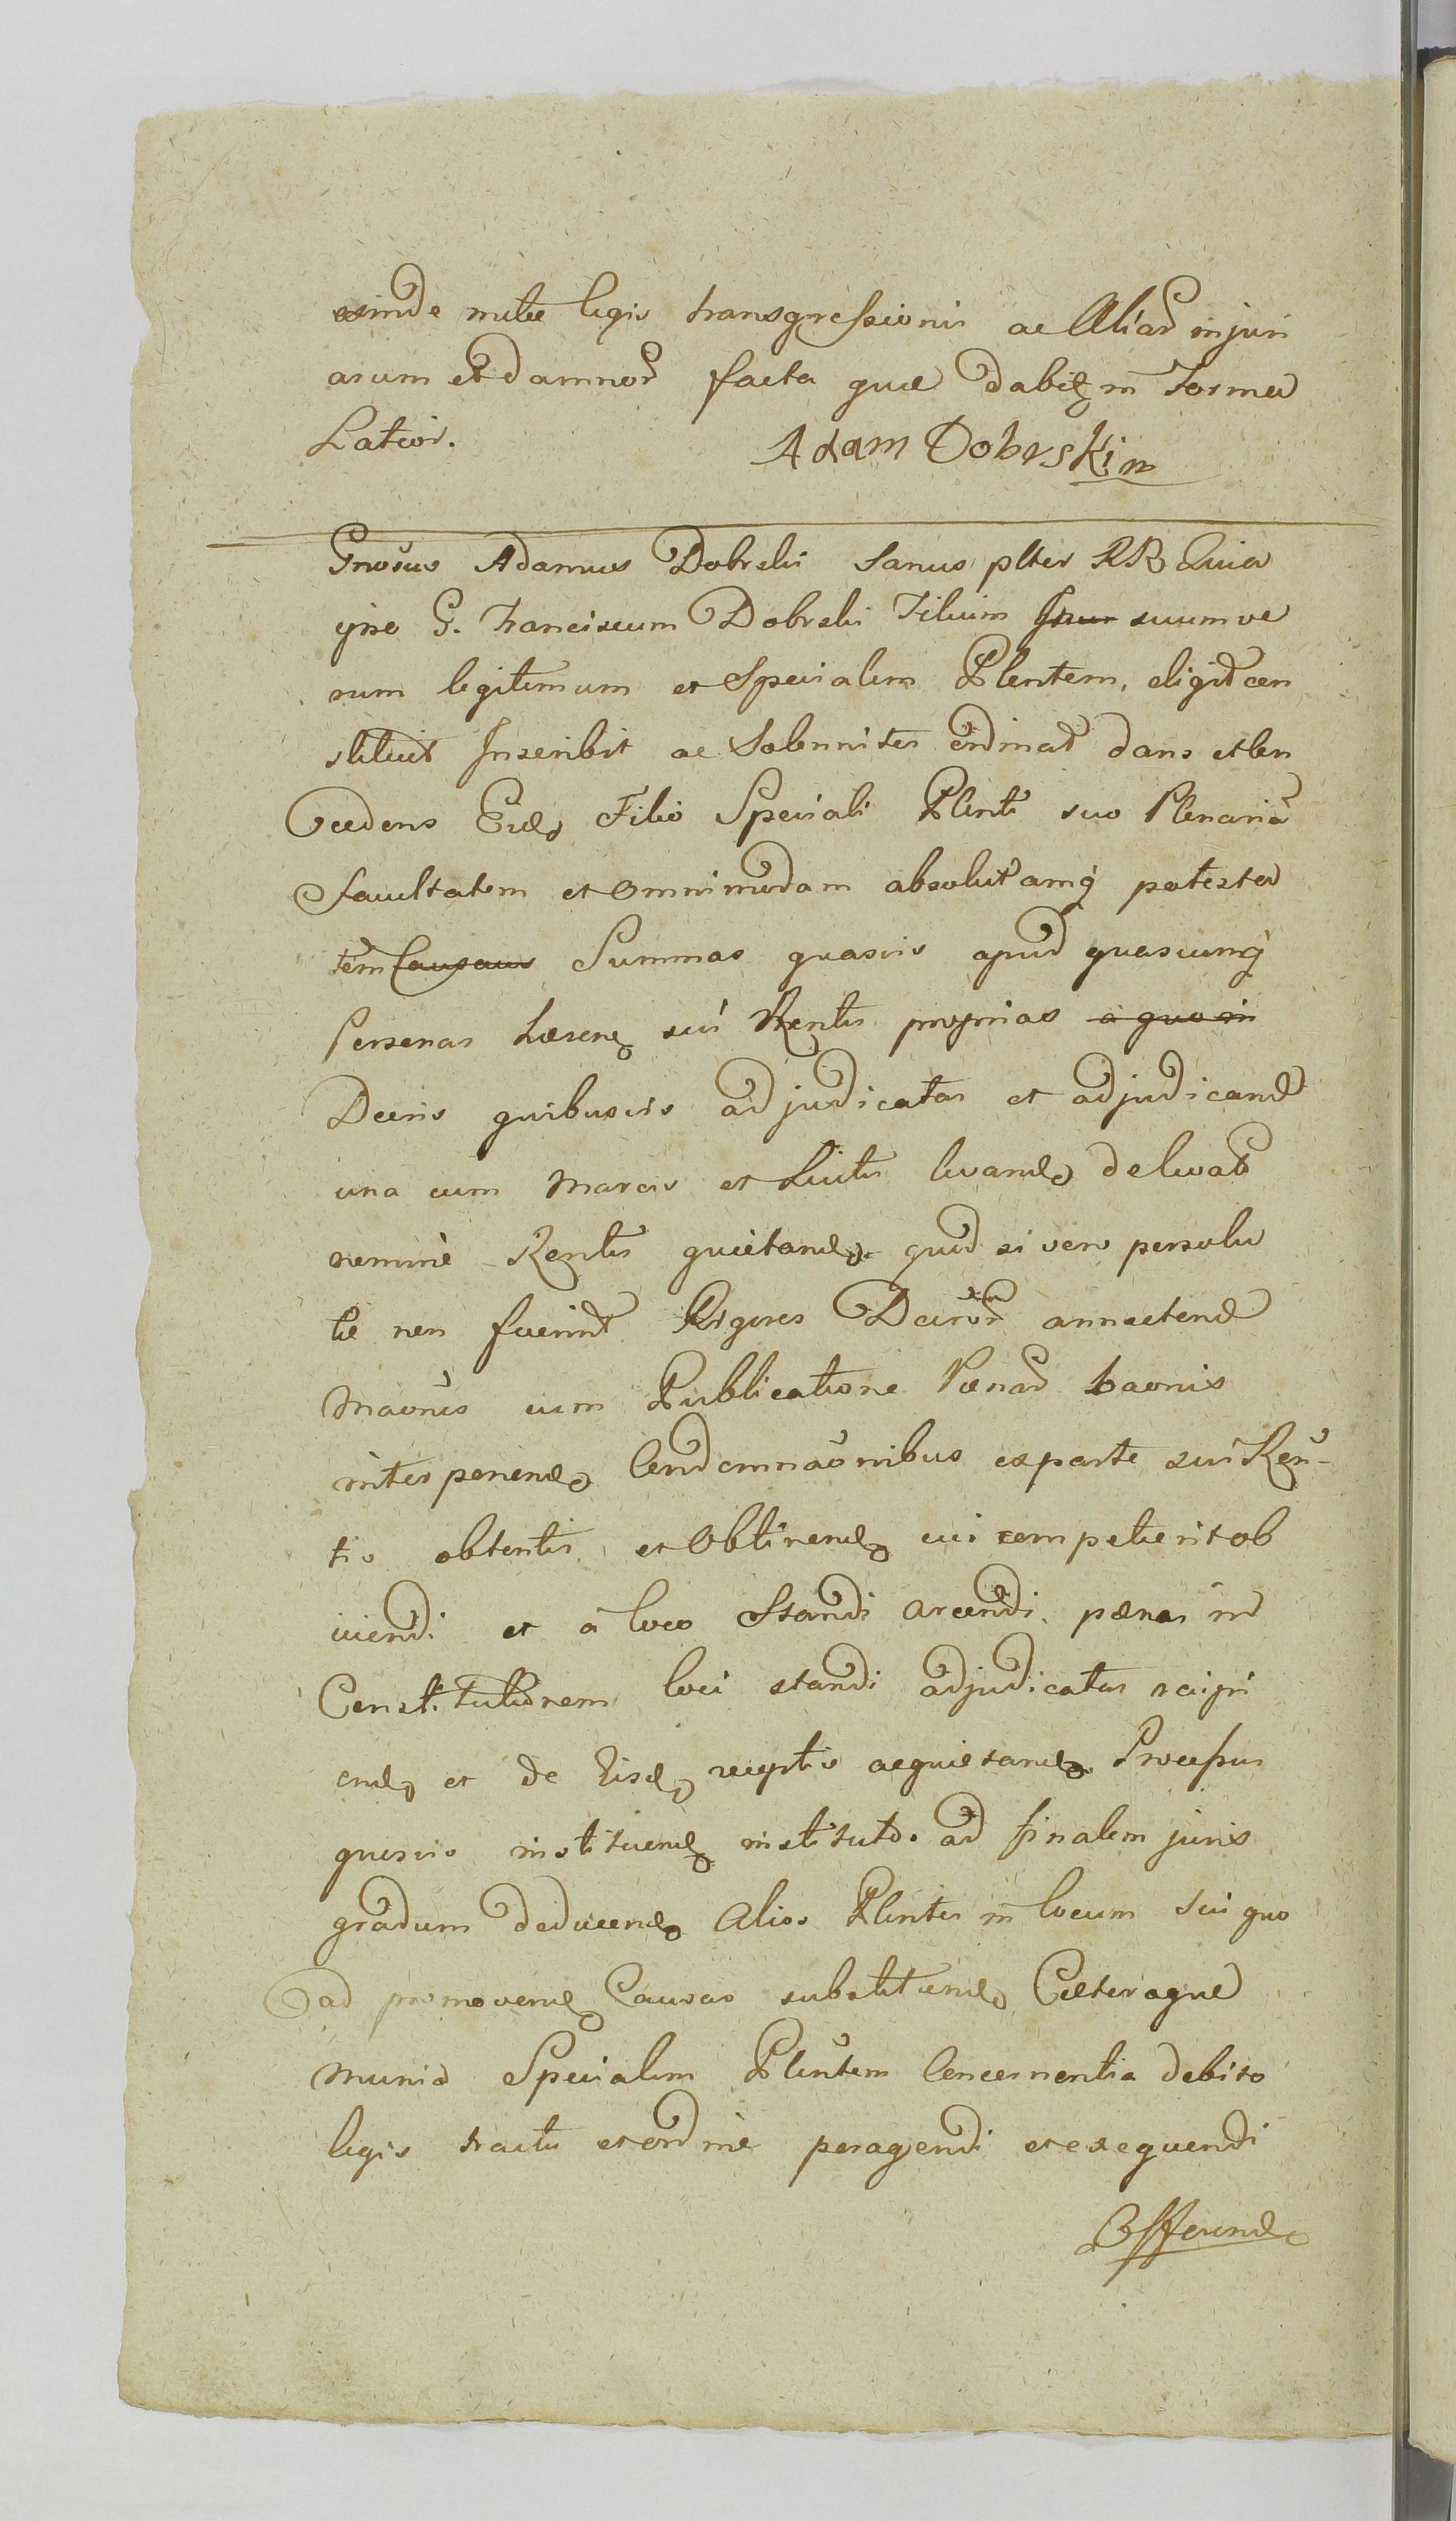 exinde mulce legis transgressionis ac Aliar injuri
arum et damnor facta quæ dabit in Forma
Latior.
Adam Dobrski m
Gnosus Adamus Dobrski Sanus plter RR Quia
ipse G. Franciscum Dobrski Filium suum ve
rum legitimum et Specialem Plentem, eligit con
stituit Inscribit ac Solenniter ordinat dans et Con
cedens Eid Filio Speciali Plenti suo Plenaria
facultatem et omnimodam absolutamq potesta
tem Causaus Summas quasvis apud quascunq
Personas sui Rentis proprias a quo in
Decris quibusvis adjudicatas et adjudicand
una cum Marcis et Luitis levand de levat
nemine Rentis quietand quod si vero persolu
tæ non fuerint Rigores Decror annectend
Maonis cum Publicatione Pœnar baonis
interponend Condemnaonibus ex parte sui Ren-
tis obtentis et Obtinend cui competierit ob
iiciendi et a loco Standi arcendi, pænas in
Constitutionem loci standi adjudicatas recipi
end et de Eisd receptis acquietand Processus
quosvis instituend institutos ad finalem juris
gradum deducend Alios Plentes in locum sui quo
ad promovend Causas substituend Cæteraque
munia Specialem Plentem Concernentia debito
legis tractu et ordine peragendi et exequendi
Offerend